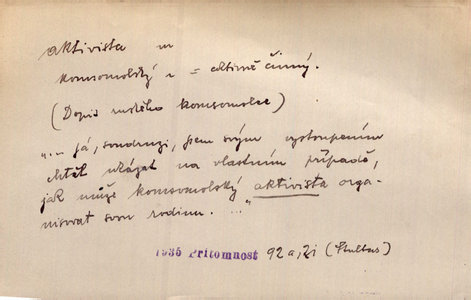 aktivista m
komsomolský a = aktivně činný.
(Dopis ruského komsomolce)
"... já, soudruzi, jsem svým vystoupením
chtěl ukázat na vlastním případě,
jak může komsomolský aktivista orga-
nisovat svou rodinu. ..."
1935 Přítomnost 92 a, Zi (Stulbas)